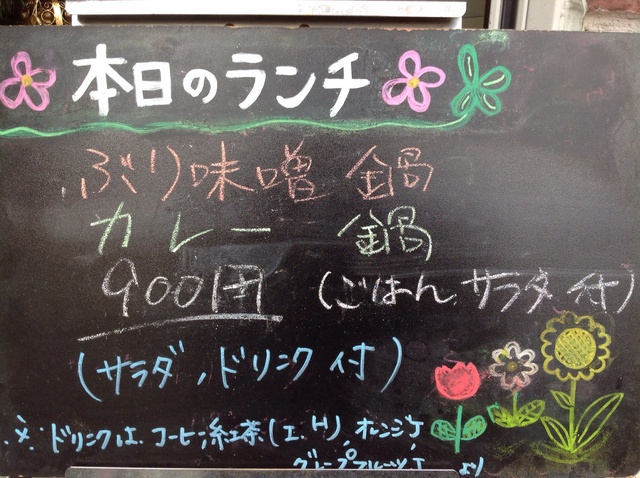 本日のランチ
ぶり味噌鍋
カレー鍋
900円 (ごはん、サラダ付)
(サラダ、ドリンク付)
※ドリンクは、コーヒー、紅茶(I、H)、オレンジJ
グレープフルーツJ より